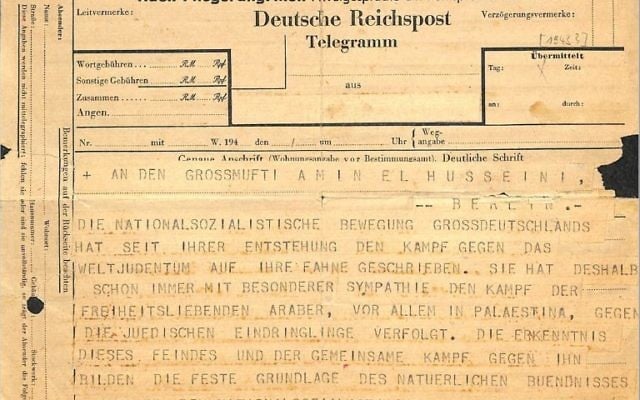 Leitvermerke:
Deutsche Reichspost
Verzögerungsvermerke:
Telegramm
[1943?]
Übermittelt
Wortgebühren . . . RM Rpf
Tag: Zeit:
Sonstige Gebühren RM Rpf
Zusammen . . . . . RM Rpf
aus
Angen.
an: durch:
Nr. mit W. 194 den / um Uhr Weg-
angabe
Genaue Anschrift (Wohnungsangabe vor Bestimmungsamt). Deutliche Schrift
+ AN DEN GROSSMUFTI AMIN EL HUSSEINI,
-- BERLIN.-
DIE NATIONALSOZIALISTISCHE BEWEGUNG GROSSDEUTSCHLANDS
HAT SEIT IHRER ENTSTEHUNG DEN KAMPF GEGEN DAS
WELTJUDENTUM AUF IHRE FAHNE GESCHRIEBEN. SIE HAT DESHALB
SCHON IMMER MIT BESONDERER SYMPATHIE DEN KAMPF DER
FREIHEITSLIEBENDEN ARABER, VOR ALLEM IN PALAESTINA, GEGEN
DIE JUEDISCHEN EINDRINGLINGE VERFOLGT. DIE ERKENNTNIS
DIESES FEINDES UND DER GEMEINSAME KAMPF GEGEN IHN
BILDEN DIE FESTE GRUNDLAGE DES NATUERLICHEN BUENDNISSES
Bemerkungen auf der Rückseite beachten
Absender:
Name:
Wohnort:
Straße:
Hausnummer:
Stockwerk: